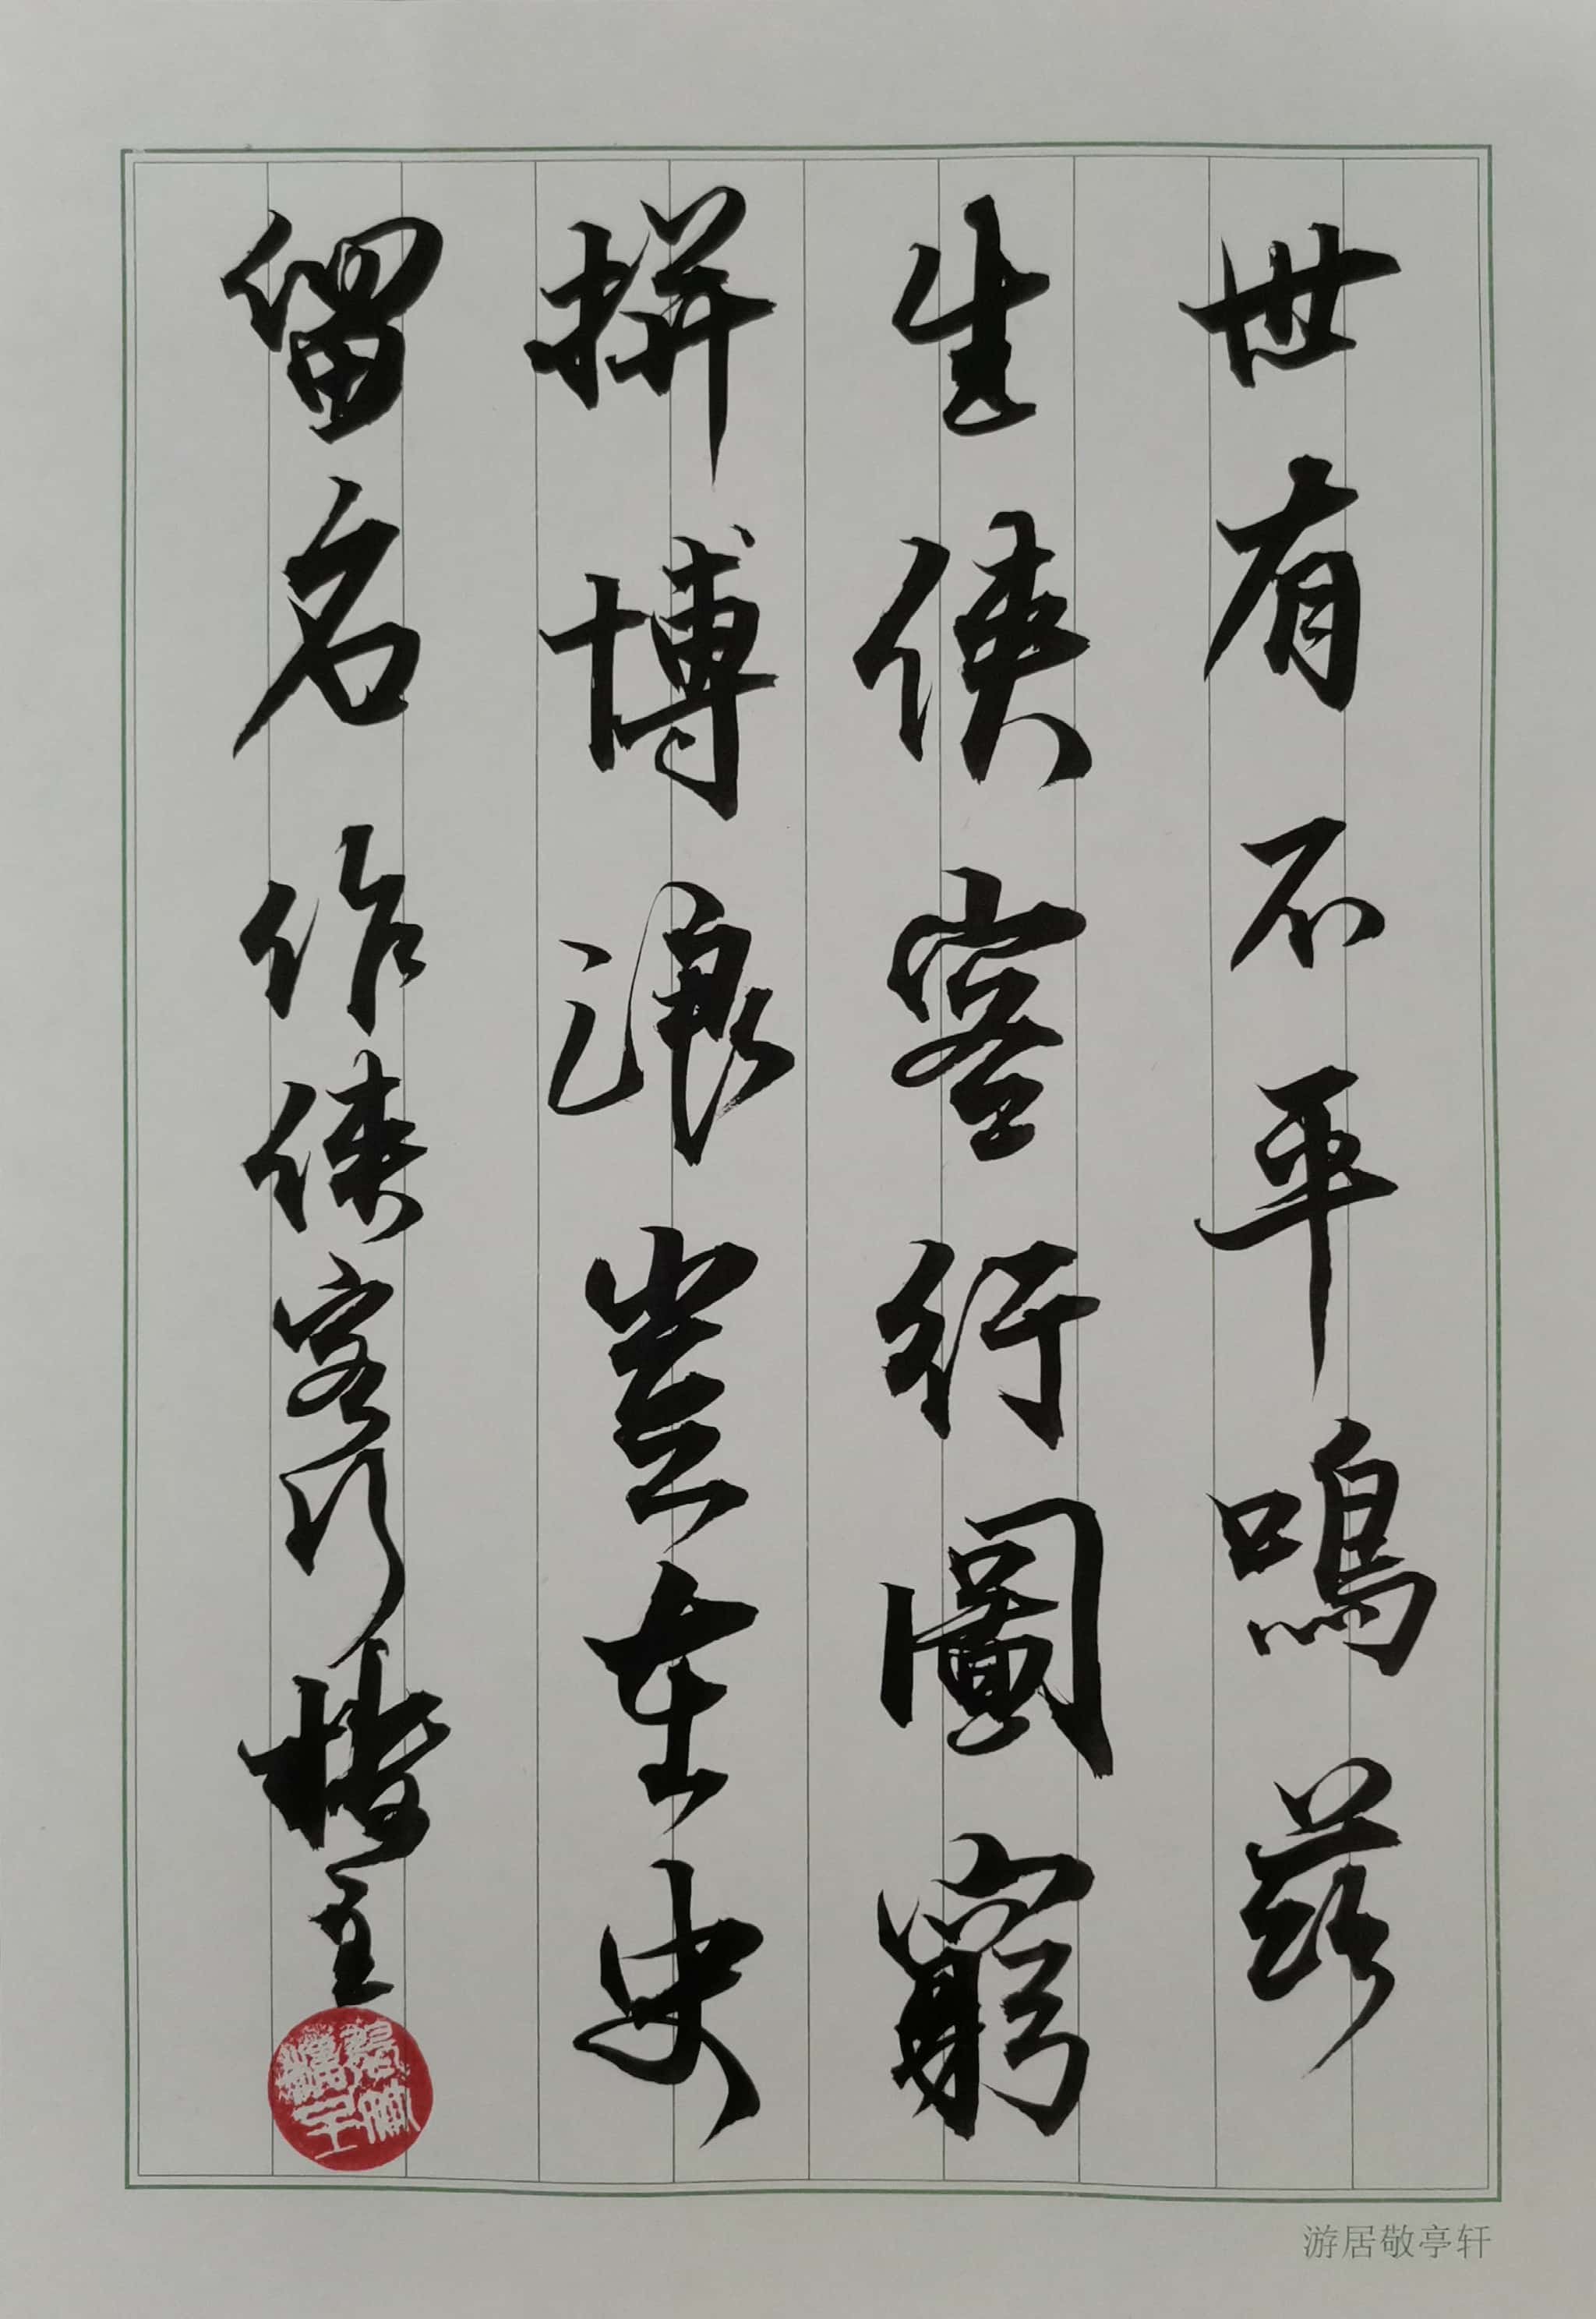 世有不平鳴茲
生俠客行圖窮
拼博浪豈在史
留名作俠客行主
游居敬亭轩